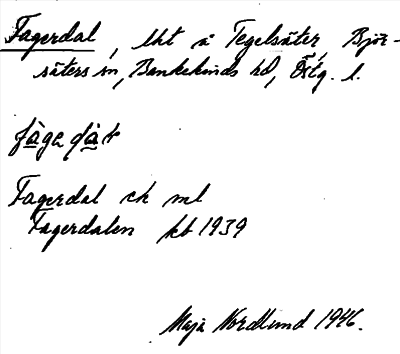 Fagerdal, lht å Tegelsäter, Björ-
säters sn, Bankekinds hd, Östg. l.
Fagerdal ek ml
Fagerdalen kb 1939
Maja Nordlund 1946.